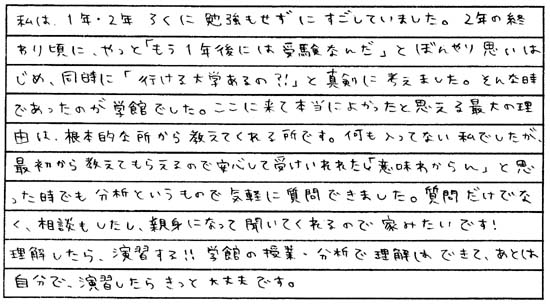 私は、1年・2年 ろくに 勉強もせず に すごしていました。2年の終
わり頃に、やっと「もう1年後には 受験なんだ」と ぼんやり思いは
じめ、同時に「行ける大学あるの?!」と真剣に考えました。そんな時
であったのが学館でした。ここに来て本当によかったと思える最大の理
由は、根本的な所から教えてくれる所です。何も入ってない私でしたが、
最初から教えてもらえるので安心して受けいれれたし「意味わからん」と思
った時でも分析というもので気軽に質問できました。質問だけでな
く、相談もしたし、親身になって聞いてくれるので家みたいです!
理解したら、演習する!!学館の授業・分析で理解はできて、あとは
自分で、演習したらきっと大丈夫です。